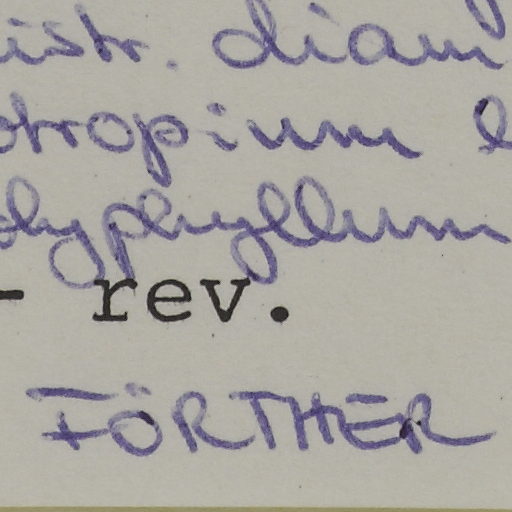 istr. diam
otropium l
olyphyllum
- rev.
FÖRTHER